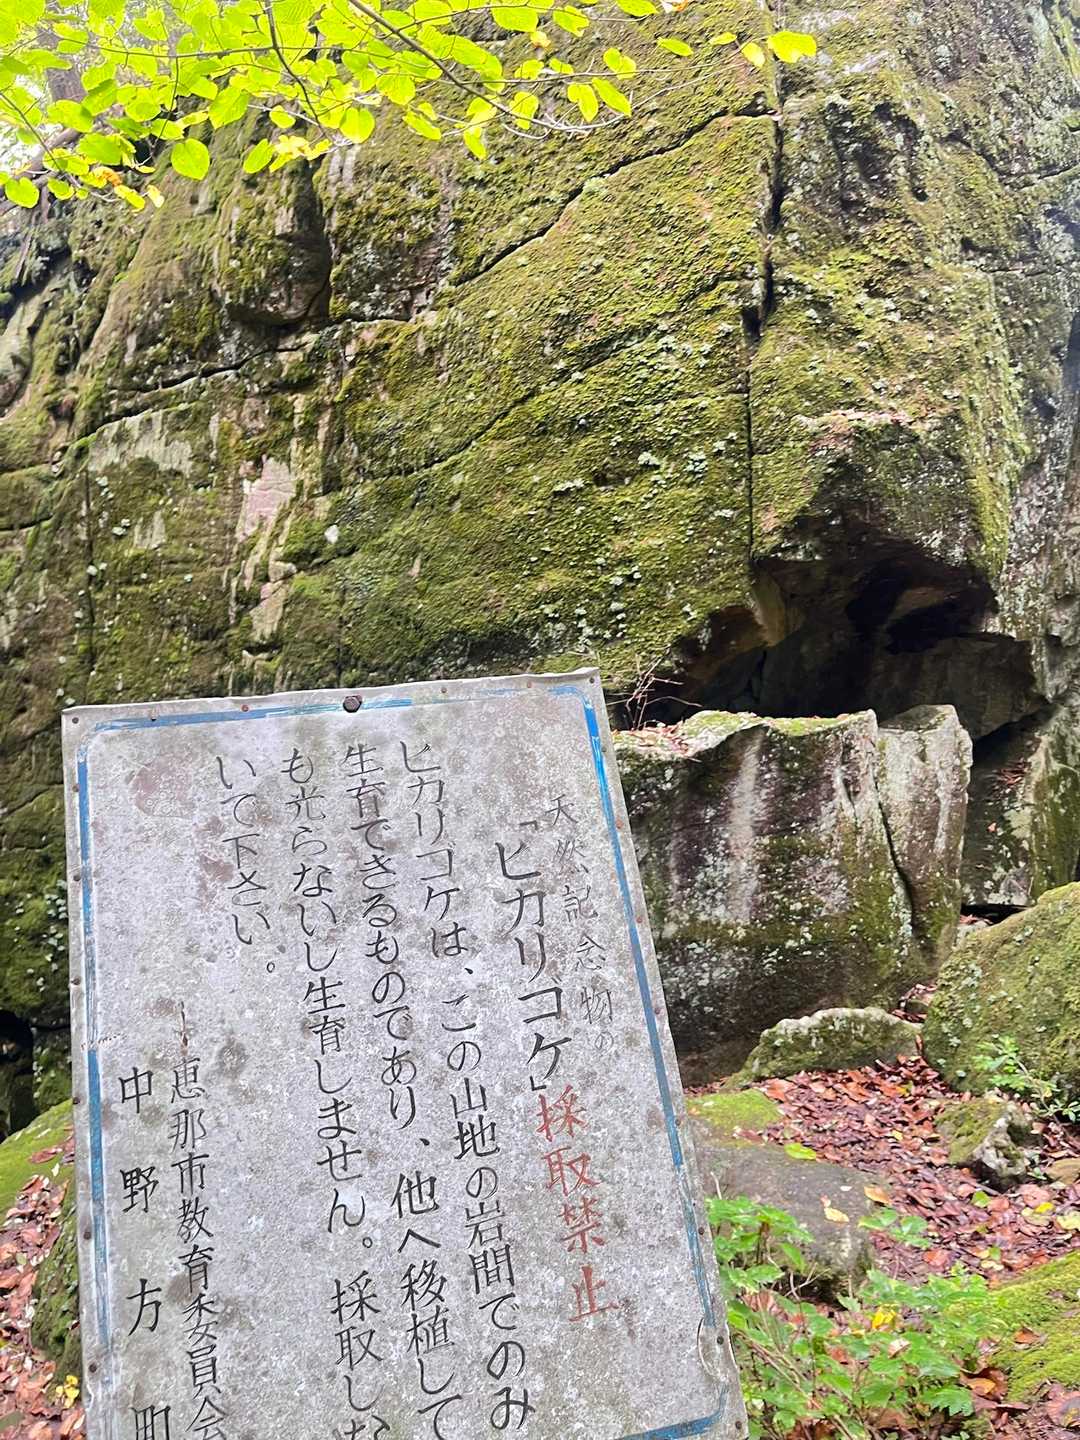 天然記念物の
「ヒカリゴケ」採取禁止
ヒカリゴケは、この山地の岩間でのみ
生育できるものであり、他へ移植して
も光らないし生育しません。採取しな
いて下さい。
恵那市教育委員会
中野方町